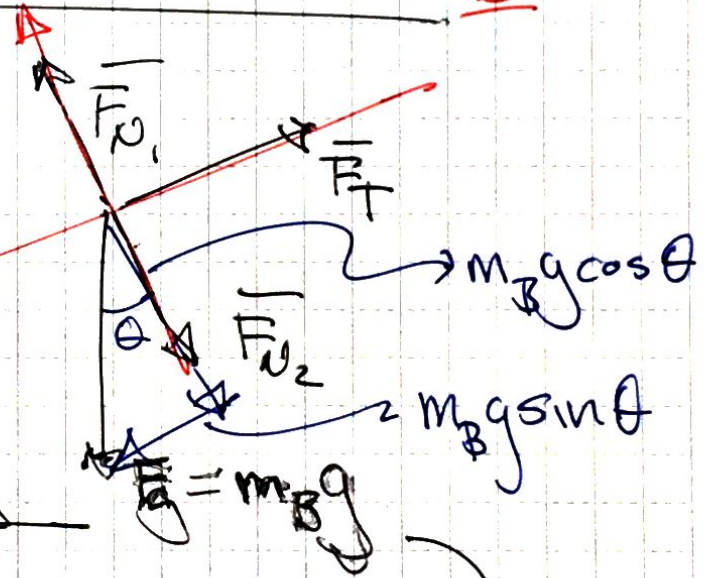 F_N₁
F_T
m_B g cos θ
θ
F_N₂
m_B g sin θ
F_g = m_B g